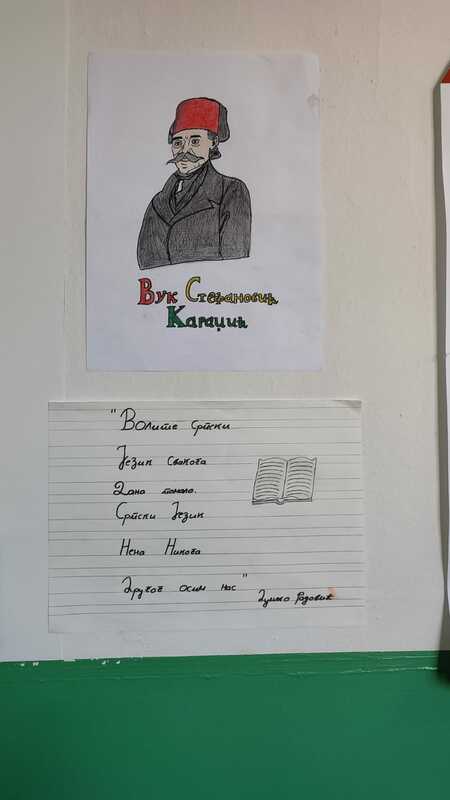 Вук Стефановић
Караџић
"Волите Српски
Језик Свакога
Дана помало.
Српски Језик
Нема Никога
Другог осим нас"
Душко Радовић